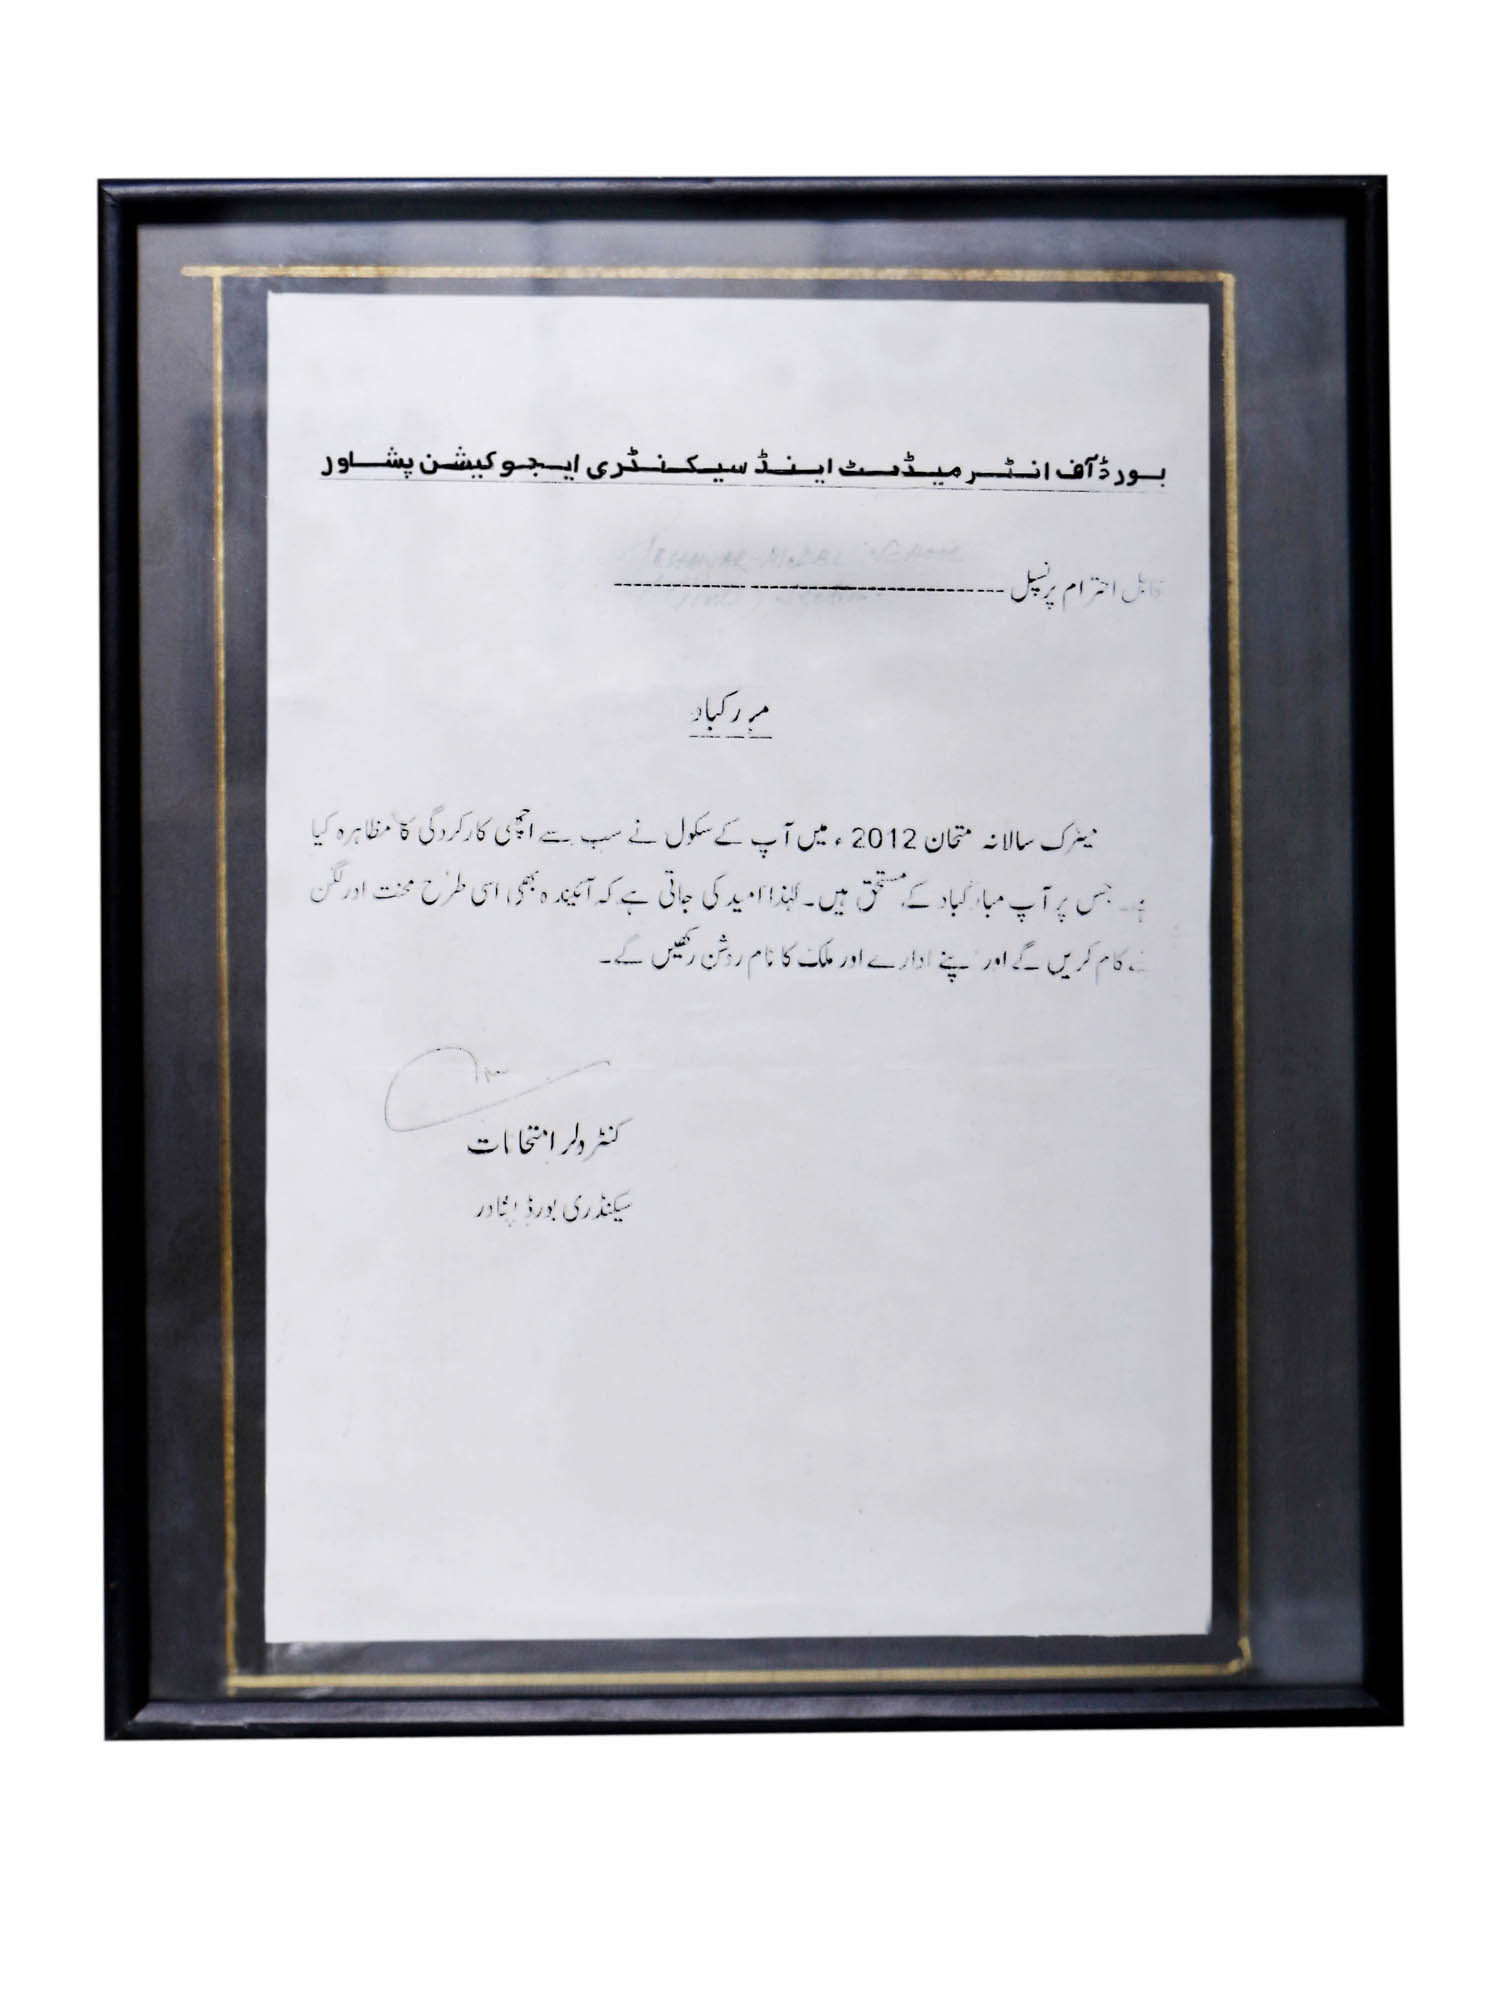 بورڈ آف انٹرمیڈیٹ اینڈ سیکنڈری ایجوکیشن پشاور
PESHAWAR MODEL SCHOOL
قابل احترام پرنسپل ------------------------------
مبارکباد
میٹرک سالانہ امتحان 2012ء میں آپ کے سکول نے سب سے اچھی کارکردگی کا مظاہرہ کیا
ہے۔ جس پر آپ مبارکباد کے مستحق ہیں۔ لہٰذا امید کی جاتی ہے کہ آئیندہ بھی اسی طرح محنت اور لگن
سے کام کریں گے اور اپنے ادارے اور ملک کا نام روشن رکھیں گے۔
کنٹرولر امتحانات
سیکنڈری بورڈ پشاور